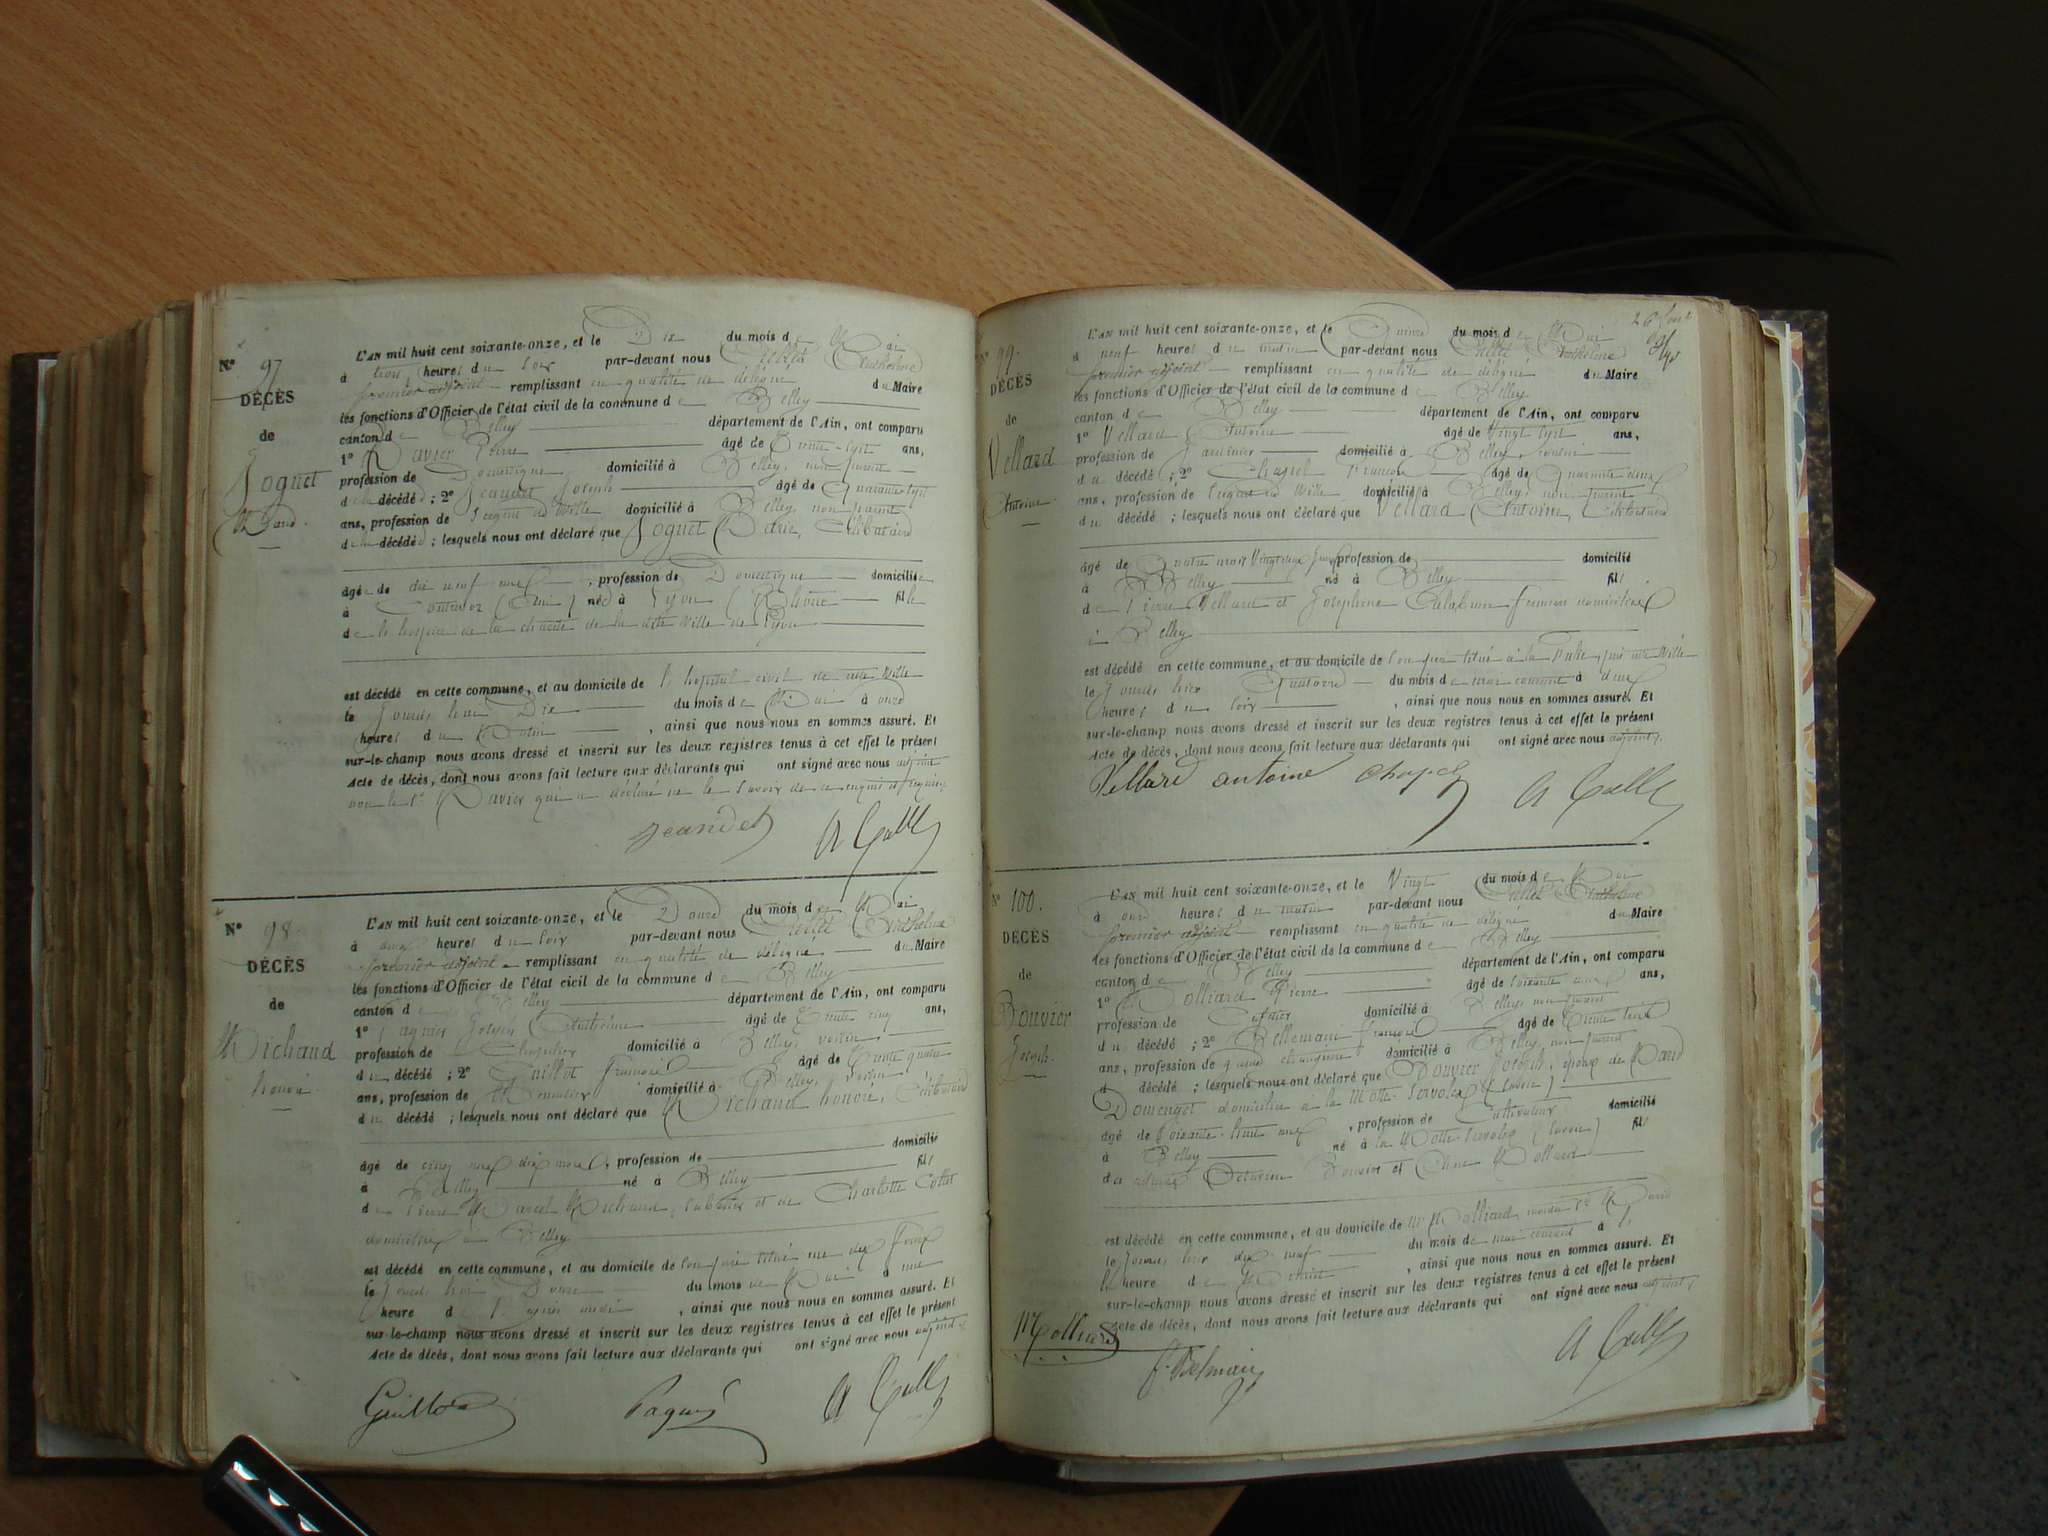 N° 97
DÉCÈS
de
Joguet
Marie
L'AN mil huit cent soixante-onze, et le Dix du mois de Mai
à trois heures du soir par-devant nous Anthelme
premier adjoint remplissant en qualité de délégué du Maire
les fonctions d'Officier de l'état civil de la commune de Belley
canton de Belley département de l'Ain, ont comparu
1° Ravier Pierre âgé de Trente-sept ans,
profession de Domestique domicilié à Belley, non parent
de la décédée ; 2° Jeandet Joseph âgé de Quarante-sept
ans, profession de Sergent de Ville domicilié à Belley, non parent
de la décédée ; lesquels nous ont déclaré que Joguet Marie, Célibataire
âgée de dix neuf ans, profession de Domestique domiciliée
à (Ain) née à Lyon (Rhône) fille
de l'hospice de la charité de la dite Ville de Lyon
est décédé en cette commune, et au domicile de l'hôpital civil de cette Ville
le Jourd'hui Dix du mois de Mai à onze
heures du Matin, ainsi que nous nous en sommes assuré. Et
sur-le-champ nous avons dressé et inscrit sur les deux registres tenus à cet effet le présent
Acte de décès, dont nous avons fait lecture aux déclarants qui ont signé avec nous adjoint
non le Sr Ravier qui a déclaré ne le savoir de ce enquis et requis
Jeandet
N° 98
DÉCÈS
de
Michaud
honoré
L'AN mil huit cent soixante-onze, et le Douze du mois de Mai
à heures du soir par-devant nous Anthelme
premier adjoint remplissant en qualité de délégué du Maire
les fonctions d'Officier de l'état civil de la commune de Belley
canton de Belley département de l'Ain, ont comparu
1° Joseph Anthelme âgé de Trente cinq ans,
profession de domicilié à Belley, voisin
du décédé ; 2° Guillot François âgé de Trente quatre
ans, profession de Menuisier domicilié à Belley, voisin
du décédé ; lesquels nous ont déclaré que Michaud honoré, Célibataire
âgé de cinq ans dix mois, profession de domicilié
à Belley né à Belley fils
de Pierre Marcel Michaud, et de Charlotte
domiciliés à Belley
est décédé en cette commune, et au domicile de son père situé rue des
le Jourd'hui Douze du mois de Mai à une
heure de l'après midi, ainsi que nous nous en sommes assuré. Et
sur-le-champ nous avons dressé et inscrit sur les deux registres tenus à cet effet le présent
Acte de décès, dont nous avons fait lecture aux déclarants qui ont signé avec nous adjoint
Guillot
N° 99
DÉCÈS
de
Vellard
Antoine
L'AN mil huit cent soixante-onze, et le Quinze du mois de Mai
à neuf heures du matin par-devant nous Anthelme
premier adjoint remplissant en qualité de délégué du Maire
les fonctions d'Officier de l'état civil de la commune de Belley
canton de Belley département de l'Ain, ont comparu
1° Vellard Antoine âgé de Vingt sept ans,
profession de Jardinier domicilié à Belley, cousin
du décédé ; 2° Chapel François âgé de Quarante deux
ans, profession de Sergent de Ville domicilié à Belley, non parent
du décédé ; lesquels nous ont déclaré que Vellard Antoine, Célibataire
âgé de Quatre mois Vingt deux Jours profession de domicilié
à Belley né à Belley fils
de Pierre Vellard et Josephine domiciliés
à Belley
est décédé en cette commune, et au domicile de son père situé
le Jour d'hier Quatorze du mois de mai courant à deux
heures du soir, ainsi que nous nous en sommes assuré. Et
sur-le-champ nous avons dressé et inscrit sur les deux registres tenus à cet effet le présent
Acte de décès, dont nous avons fait lecture aux déclarants qui ont signé avec nous adjoint.
Vellard antoine chapel
N° 100.
DÉCÈS
de
Bouvier
Joseph
L'AN mil huit cent soixante-onze, et le Vingt du mois de Mai
à onze heures du matin par-devant nous Anthelme
premier adjoint remplissant en qualité de délégué du Maire
les fonctions d'Officier de l'état civil de la commune de Belley
canton de Belley département de l'Ain, ont comparu
1° Molliard Pierre âgé de soixante ans,
profession de domicilié à Belley, non parent
du décédé ; 2° François âgé de Trente trois
ans, profession de domicilié à Belley, non parent
d décédé ; lesquels nous ont déclaré que Bouvier Joseph, époux de Marie
Domenget domicilié à la Motte-Servolex (Savoie)
âgé de Soixante-huit ans, profession de Cultivateur domicilié
à Belley né à la Motte-Servolex (Savoie) fils
de Bouvier et
est décédé en cette commune, et au domicile de Mr Molliard
le Jour d'hier dix-neuf du mois de mai courant à
heure de, ainsi que nous nous en sommes assuré. Et
sur-le-champ nous avons dressé et inscrit sur les deux registres tenus à cet effet le présent
Acte de décès, dont nous avons fait lecture aux déclarants qui ont signé avec nous adjoint
Molliard